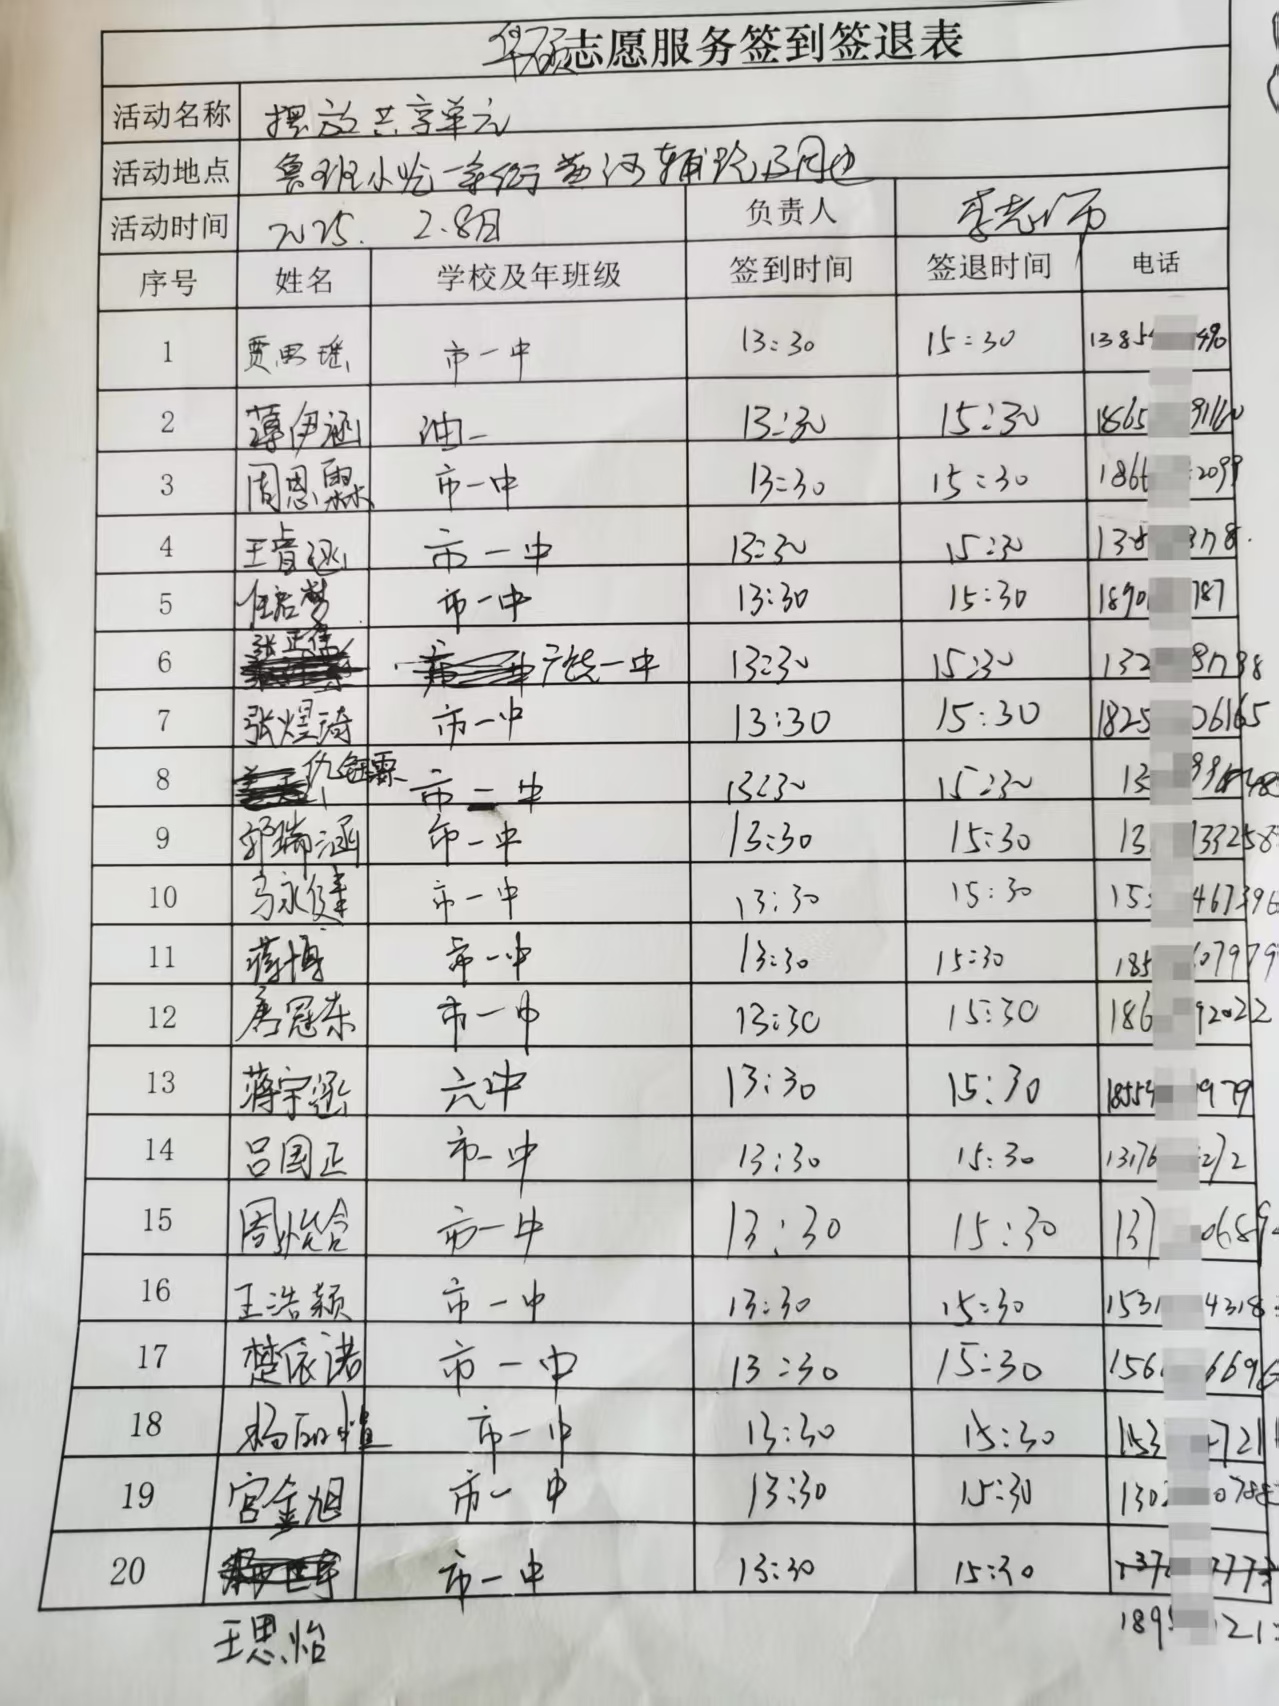 华硕志愿服务签到签退表
活动名称 摆放共享单元
活动地点 鲁班小吃一条街 黄河辅路及周边
活动时间 2025. 2.8日 负责人 李老师
序号 姓名 学校及年班级 签到时间 签退时间 电话
1 贾思瑶 市一中 13:30 15:30 1385 490
2 薄伊涵 油一 13:30 15:30 1865
3 周恩霖 市一中 13:30 15:30 186 2099
4 王睿涵 市一中 13:30 15:30 138 178
5 市一中 13:30 15:30 1890 787
6 张正 广饶一中 13:30 15:30 132 8
7 张煜琦 市一中 13:30 15:30 1825 06165
8 仇钰霖 市一中 13:30 15:30 13
9 郭瑞涵 市一中 13:30 15:30 13 33258
10 马永健 市一中 13:30 15:30 15 467396
11 蒋博 市一中 13:30 15:30 185 07979
12 唐冠东 市一中 13:30 15:30 186 92022
13 蒋宇涵 六中 13:30 15:30 1855 979
14 吕国正 市一中 13:30 15:30 13176 272
15 周怡含 市一中 13:30 15:30 137 0689
16 王浩颖 市一中 13:30 15:30 1531 4318
17 楚依诺 市一中 13:30 15:30 156 6696
18 杨 市一中 13:30 15:30 153 721
19 宫金旭 市一中 13:30 15:30 130 0788
20 市一中 13:30 15:30 137 773
王思怡 189 121